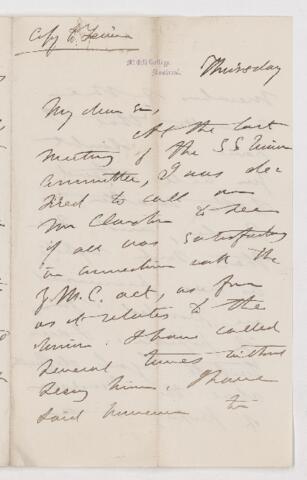 Copy
McGill College
Montreal
Thursday
My dear Sir,
At the last
meeting of the S S Union
Committee, I was de-
sired to call on
Mr to see
if all was satisfactory
in connection with the
Y.M.C. act, as far
as it relates to the
Union. I have called
several times without
seeing him. I have
said however to